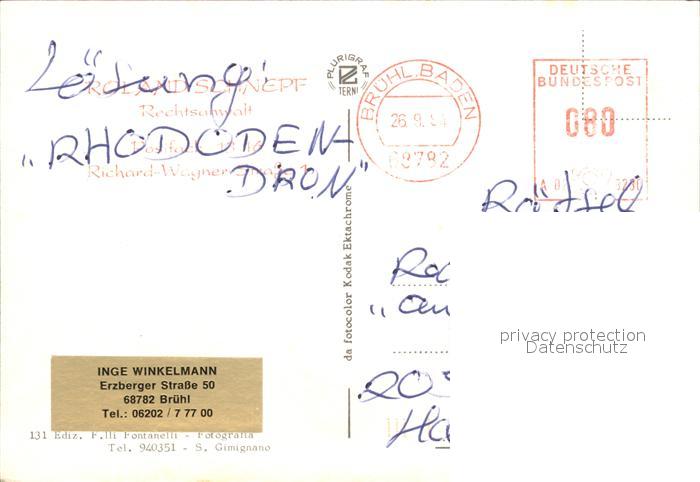 Lösung:
ROLAND SCHNEPF
Rechtsanwalt
"RHODODEN-
DRON"
Postfach
Richard-Wagner-Straße 1
INGE WINKELMANN
Erzberger Straße 50
68782 Brühl
Tel.: 06202 / 7 77 00
131 Ediz. F.lli Fontanelli - Fotografia
Tel. 940351 - S. Gimignano
PLURIGRAF
TERNI
da fotocolor Kodak Ektachrome
BRÜHL, BADEN
26.9.94
68782
DEUTSCHE
BUNDESPOST
080
Rätsel
"an
Ha
privacy protection
Datenschutz